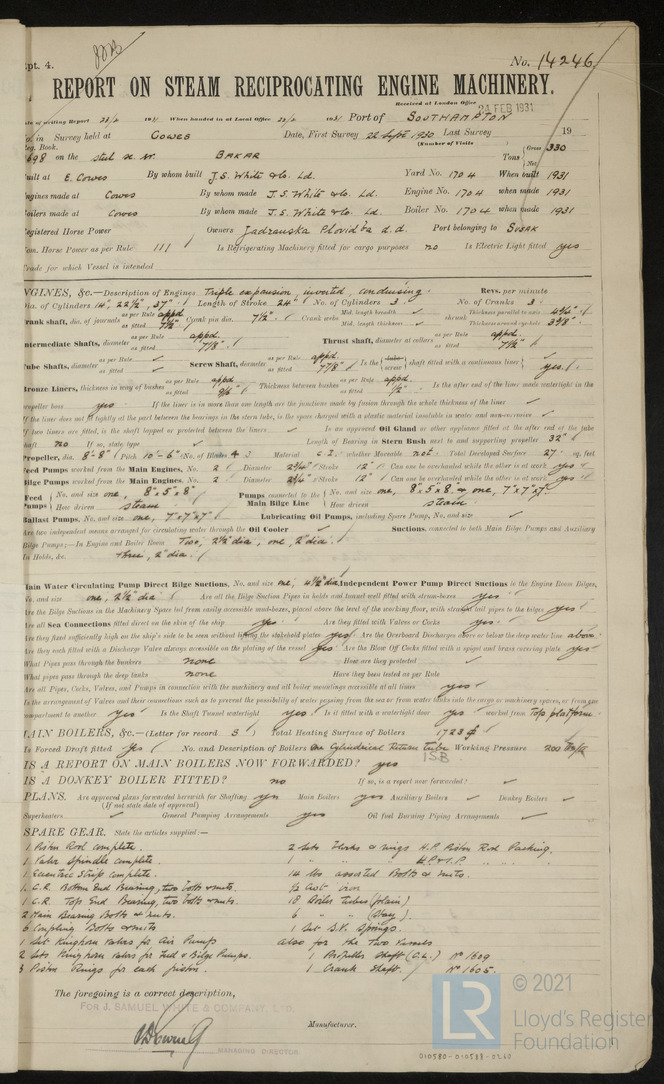 pt. 4.
No. 14246
REPORT ON STEAM RECIPROCATING ENGINE MACHINERY.
Received at London Office 24 FEB 1931
of writing Report 23/2 1931 When handed in at Local Office 23/2 1931 Port of SOUTHAMPTON
in Survey held at Cowes Date, First Survey 22 Sept 1930 Last Survey 19
Reg. Book. (Number of Visits
698 on the steel sc. sr. BAKAR Tons Gross 330 Net
uilt at E. Cowes By whom built J.S. White & Co. Ld. Yard No. 1704 When built 1931
ngines made at Cowes By whom made J.S. White & Co. Ld. Engine No. 1704 when made 1931
oilers made at Cowes By whom made J.S. White & Co. Ld. Boiler No. 1704 when made 1931
egistered Horse Power Owners Jadranska Plovidba d.d. Port belonging to SUSAK
om. Horse Power as per Rule 111 Is Refrigerating Machinery fitted for cargo purposes no Is Electric Light fitted yes
Trade for which Vessel is intended
NGINES, &c.—Description of Engines Triple expansion, inverted, condensing. Revs. per minute
Dia. of Cylinders 14", 22½", 37" Length of Stroke 24" No. of Cylinders 3 No. of Cranks 3
Crank shaft, dia. of journals as per Rule appd as fitted 7½" Crank pin dia. 7½" Crank webs Mid. length breadth Mid. length thickness shrunk Thickness parallel to axis 4¾" Thickness around eye-hole 3⅜"
Intermediate Shafts, diameter as per Rule appd. as fitted 7⅛" Thrust shaft, diameter at collars as per Rule appd. as fitted 7½"
Tube Shafts, diameter as per Rule as fitted Screw Shaft, diameter as per Rule appd. as fitted 7⅞" Is the tube screw shaft fitted with a continuous liner yes.
Bronze Liners, thickness in way of bushes as per Rule appd as fitted 9/16" Thickness between bushes as per Rule appd. as fitted ½" Is the after end of the liner made watertight in the
propeller boss yes If the liner is in more than one length are the junctions made by fusion through the whole thickness of the liner
If the liner does not fit tightly at the part between the bearings in the stern tube, is the space charged with a plastic material insoluble in water and non-corrosive
If two liners are fitted, is the shaft lapped or protected between the liners Is an approved Oil Gland or other appliance fitted at the after end of the tube
shaft no If so, state type Length of Bearing in Stern Bush next to and supporting propeller 32"
Propeller, dia. 8'-8" Pitch 10'-6" No. of Blades 4 Material C.I. whether Moveable not. Total Developed Surface 27 sq. feet
Feed Pumps worked from the Main Engines, No. 2 Diameter 2¾" Stroke 12" Can one be overhauled while the other is at work yes
Bilge Pumps worked from the Main Engines, No. 2 Diameter 2¾" Stroke 12" Can one be overhauled while the other is at work yes
Feed Pumps No. and size one, 8"x5"x8" How driven steam Pumps connected to the Main Bilge Line No. and size one, 8"x5"x8", & one, 7"x7"x7" How driven steam
Ballast Pumps, No. and size one, 7"x7"x7" Lubricating Oil Pumps, including Spare Pump, No. and size
Are two independent means arranged for circulating water through the Oil Cooler Suctions, connected to both Main Bilge Pumps and Auxiliary
Bilge Pumps;—In Engine and Boiler Room Two, 2½" dia, one, 2" dia.
In Holds, &c. three, 2" dia.
Main Water Circulating Pump Direct Bilge Suctions, No. and size one, 4½" dia Independent Power Pump Direct Suctions to the Engine Room Bilges,
No. and size one, 2½" dia Are all the Bilge Suction Pipes in holds and tunnel well fitted with strum-boxes yes
Are the Bilge Suctions in the Machinery Space led from easily accessible mud-boxes, placed above the level of the working floor, with straight tail pipes to the bilges yes
Are all Sea Connections fitted direct on the skin of the ship yes Are they fitted with Valves or Cocks yes
Are they fixed sufficiently high on the ship's side to be seen without lifting the stokehold plates yes Are the Overboard Discharges above or below the deep water line above
Are they each fitted with a Discharge Valve always accessible on the plating of the vessel yes Are the Blow Off Cocks fitted with a spigot and brass covering plate yes
What Pipes pass through the bunkers none How are they protected
What pipes pass through the deep tanks none Have they been tested as per Rule
Are all Pipes, Cocks, Valves, and Pumps in connection with the machinery and all boiler mountings accessible at all times yes
Is the arrangement of Valves and their connections such as to prevent the possibility of water passing from the sea or from water tanks into the cargo or machinery spaces, or from one
compartment to another yes Is the Shaft Tunnel watertight yes. Is it fitted with a watertight door yes worked from Top platform
MAIN BOILERS, &c.—(Letter for record S) Total Heating Surface of Boilers 1723
Is Forced Draft fitted yes No. and Description of Boilers One Cylindrical Return tube Working Pressure 200
1SB
IS A REPORT ON MAIN BOILERS NOW FORWARDED? yes
IS A DONKEY BOILER FITTED? no If so, is a report now forwarded?
PLANS. Are approved plans forwarded herewith for Shafting yes Main Boilers yes Auxiliary Boilers Donkey Boilers
(If not state date of approval)
Superheaters General Pumping Arrangements yes Oil fuel Burning Piping Arrangements
SPARE GEAR. State the articles supplied:—
1 Piston Rod complete. 2 Sets Blocks & rings H.P. Piston Rod Packing.
1 Valve Spindle complete. 1 " " " M.P & L.P " " "
1 Eccentric Strap complete 14 assorted Bolts & nuts.
1 C.R. Bottom End Bearing, two bolts & nuts. Cast iron
1 C.R. Top End Bearing, two bolts & nuts. 18 Boiler tubes (plain)
2 Main Bearing Bolts & nuts. 6 " " (Stay)
6 Coupling Bolts & nuts 1 Set S.V. Springs.
1 Set Kinghorn valves for Air Pump also for the two Vessels
2 Sets Kinghorn valves for Feed & Bilge Pumps. 1 Propeller Shaft (C.L.) No 1609
3 Piston Rings for each piston. 1 Crank Shaft. No 1605.
The foregoing is a correct description,
FOR J. SAMUEL WHITE & COMPANY, LTD.
Manufacturer.
MANAGING DIRECTOR.
010580-010588-0260
© 2021
LR
Lloyd's Register
Foundation